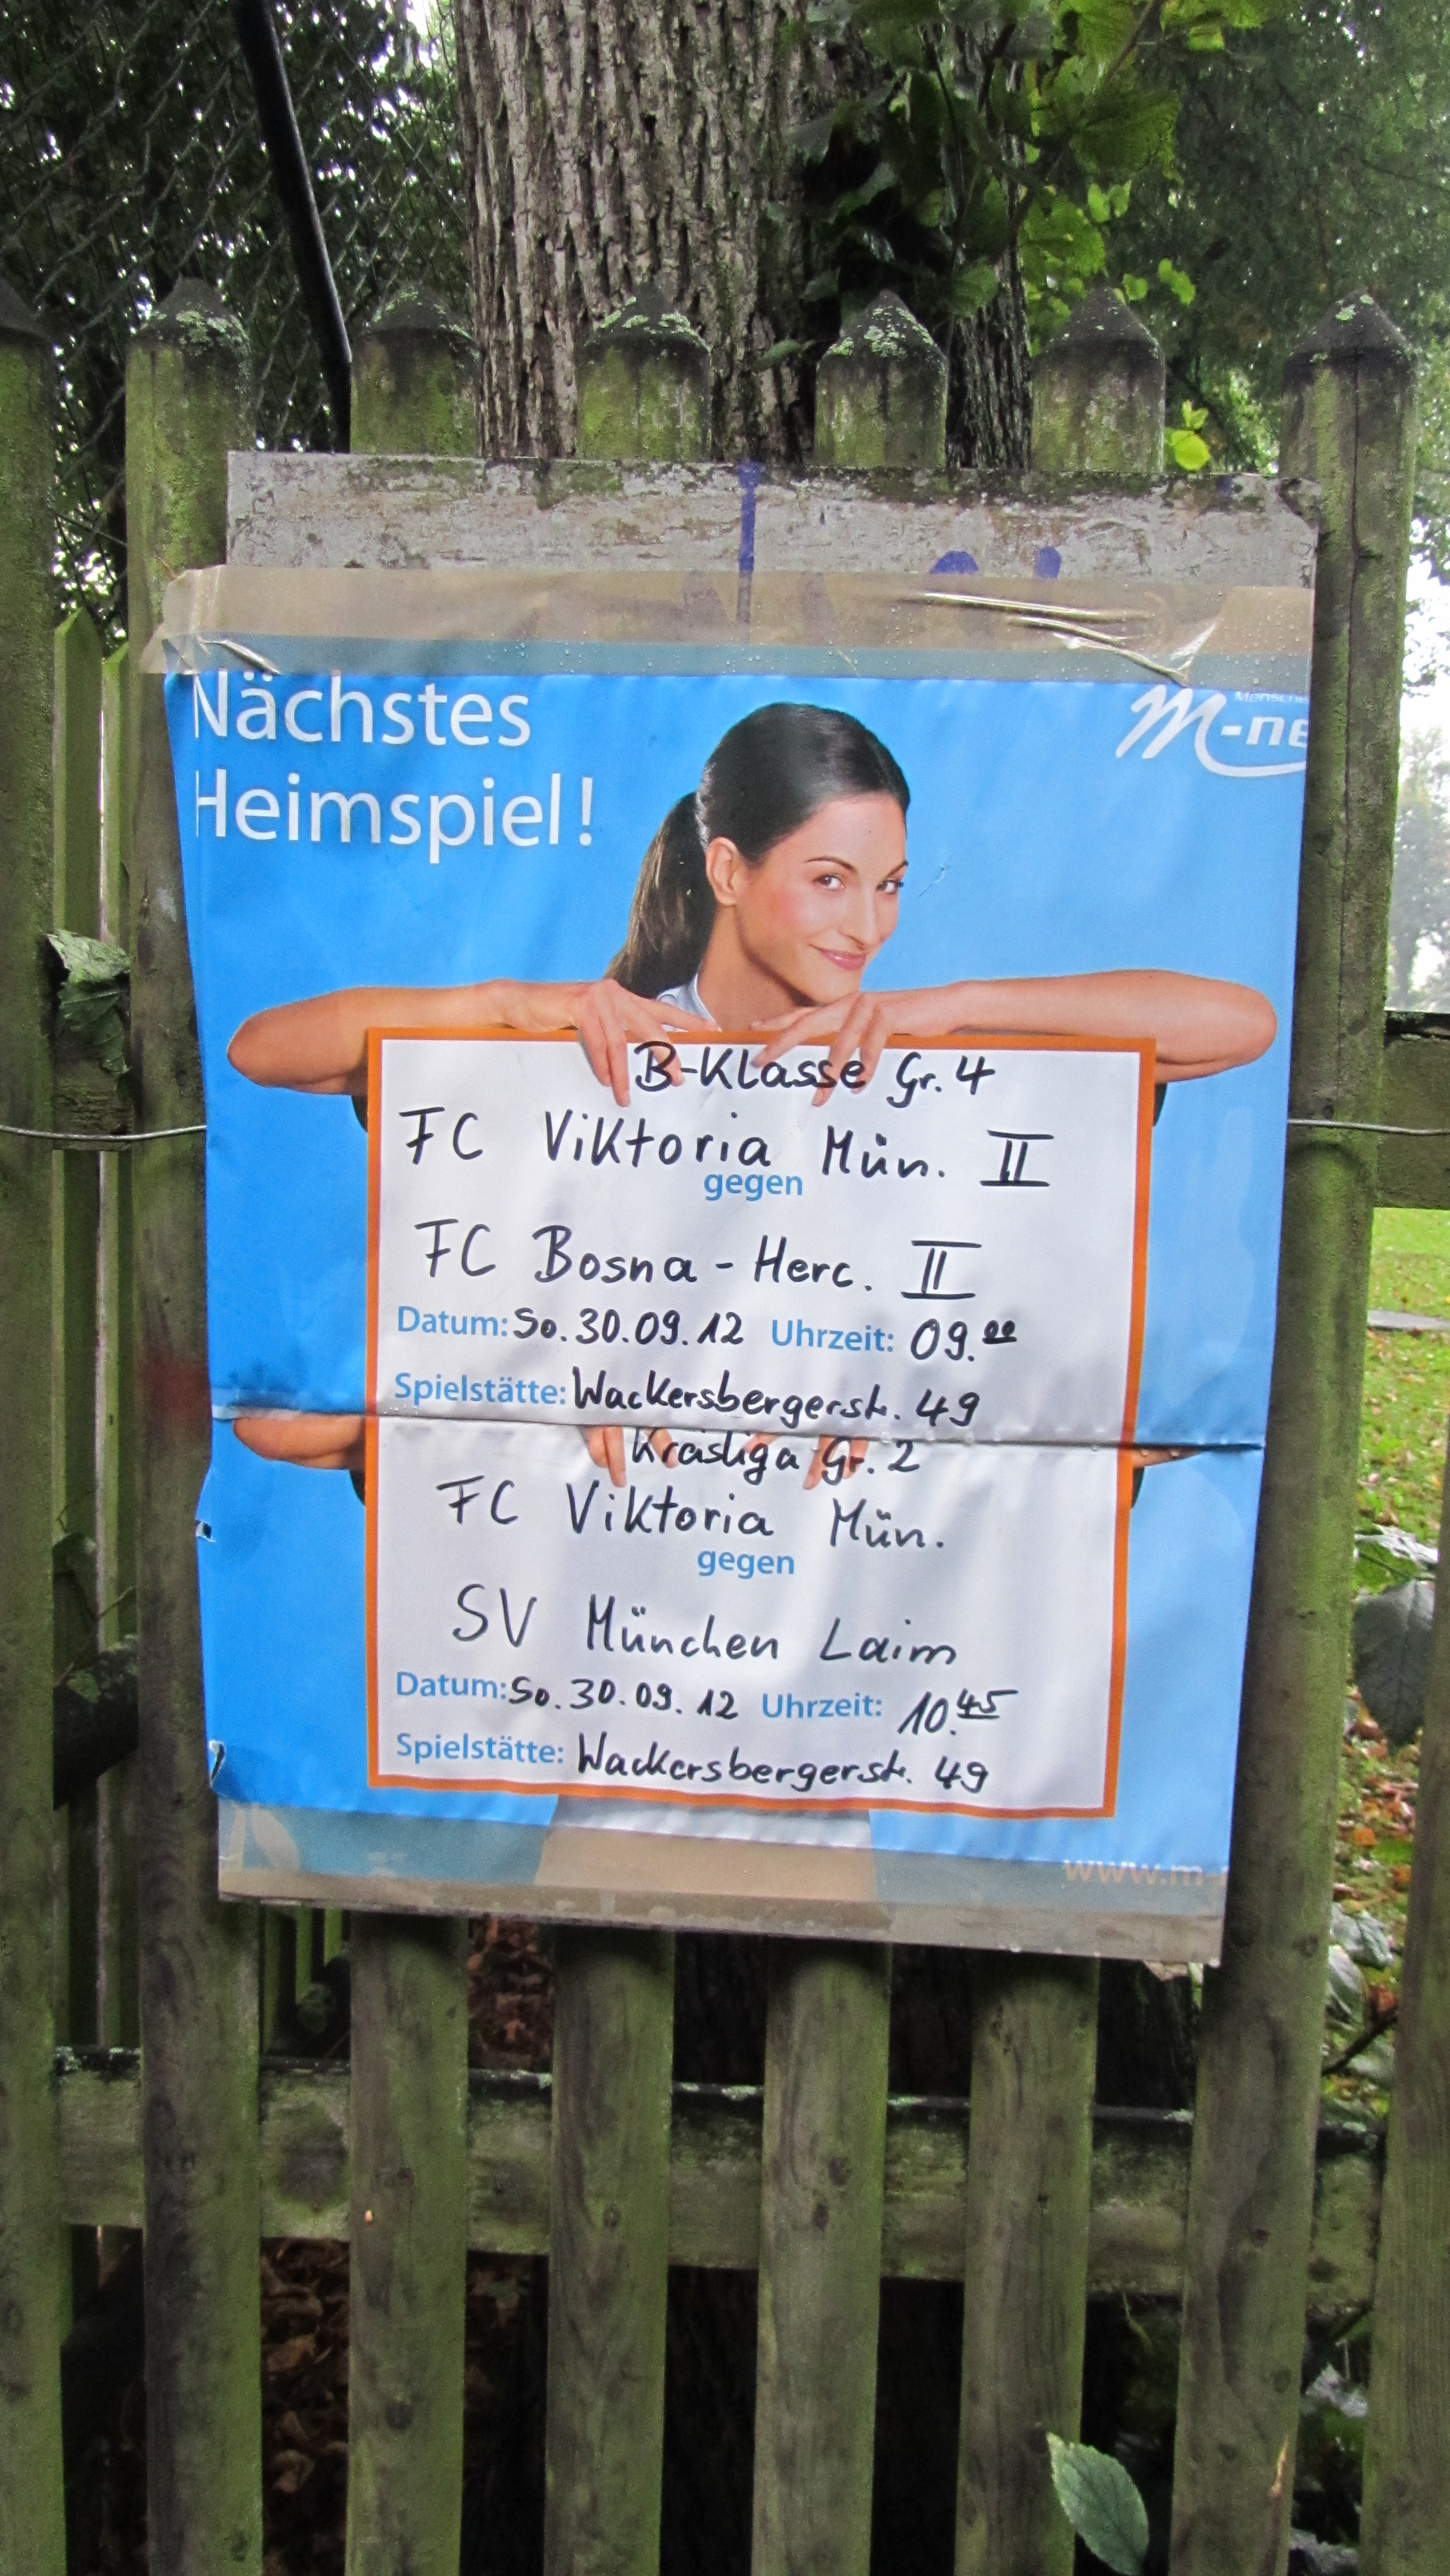 Nächstes
Heimspiel!
Mensche
M-ne
B-Klasse Gr. 4
FC Viktoria Mün. II
gegen
FC Bosna-Herc. II
Datum: So. 30.09.12 Uhrzeit: 09.00
Spielstätte: Wackersbergerstr. 49
Kreisliga Gr. 2
FC Viktoria Mün.
gegen
SV München Laim
Datum: So. 30.09.12 Uhrzeit: 10.45
Spielstätte: Wackersbergerstr. 49
www.m-